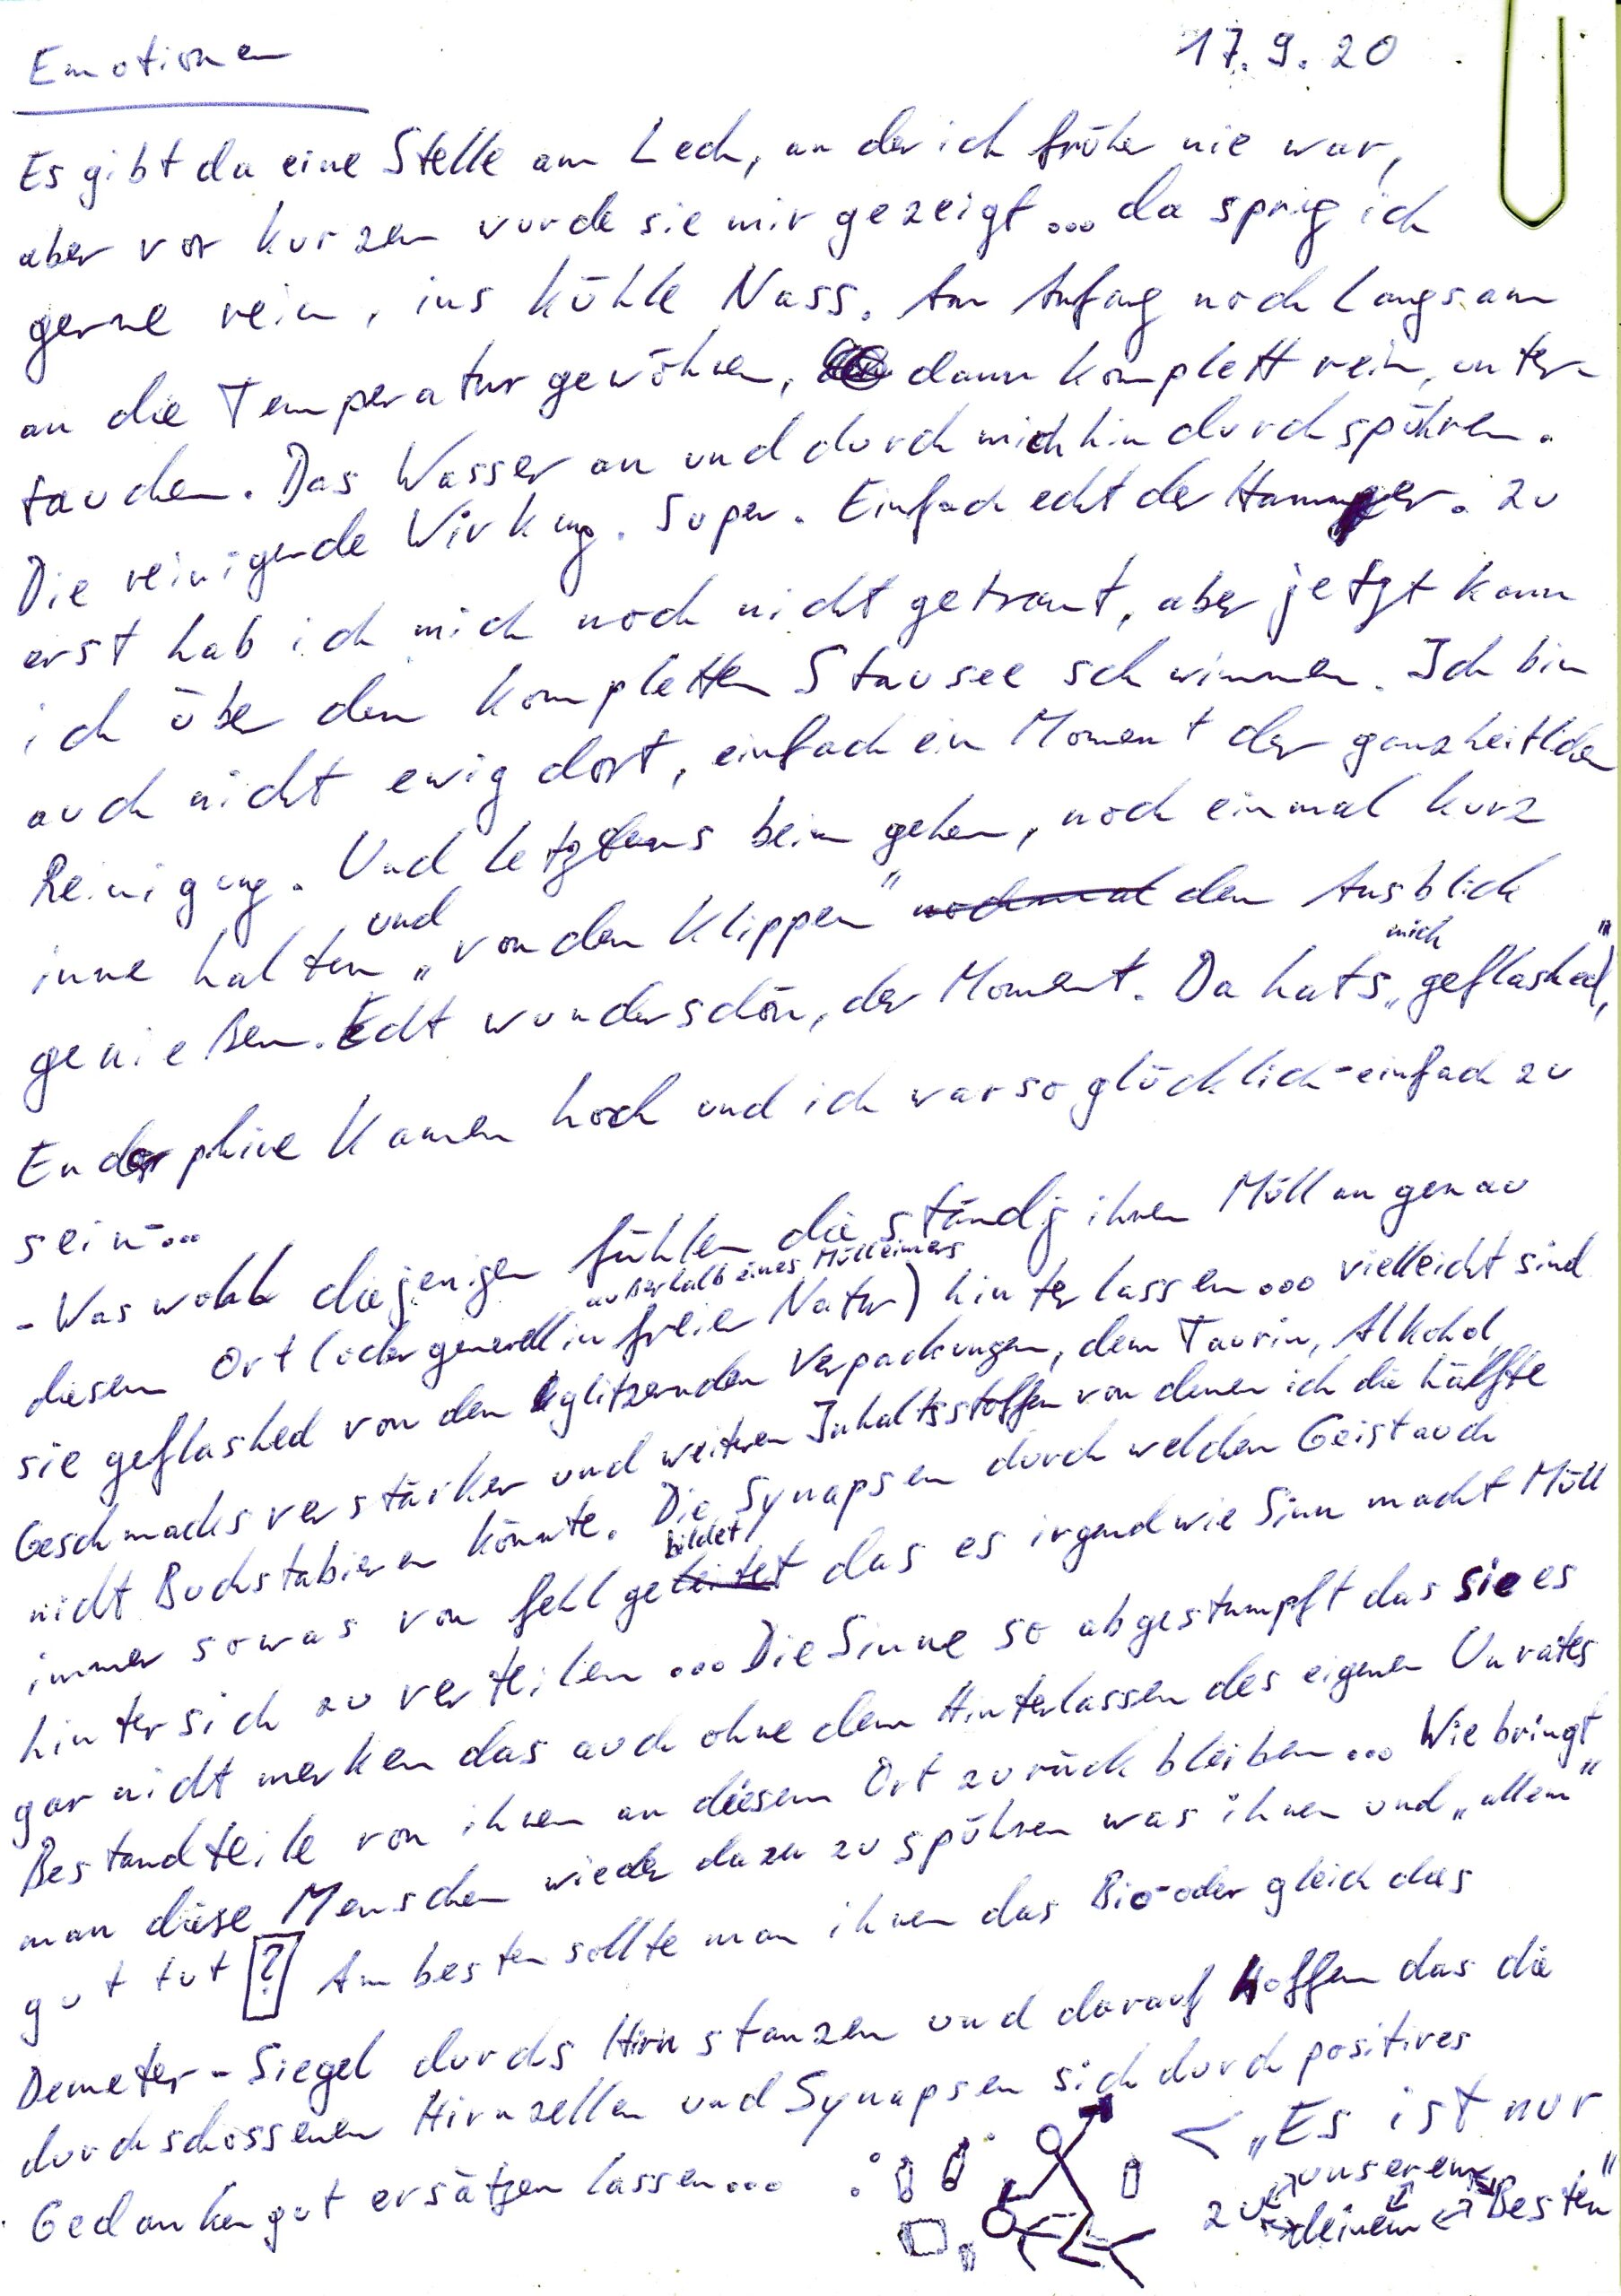 Emotionen
17.9.20
Es gibt da eine Stelle am Lech, an der ich früher nie war,
aber vor kurzem wurde sie mir gezeigt... da spring ich
gerne rein, ins kühle Nass. Am Anfang noch langsam
an die Temperatur gewöhnen, dann komplett rein, unter-
tauchen. Das Wasser an und durch mich hindurch spühren.
Die reinigende Wirkung. Super. Einfach echt der Hammer. Zu
erst hab ich mich noch nicht getraut, aber jetzt kann
ich über den kompletten Stausee schwimmen. Ich bin
auch nicht ewig dort, einfach ein Moment der ganzheitlichen
Reinigung. Und letztens beim gehen, noch einmal kurz
inne halten und „von den Klippen" nochmal den Ausblick
genießen. Echt wunderschön, der Moment. Da hats mich „geflashed",
Endorphine kamen hoch und ich war so glücklich - einfach zu
sein -...
- Was wohl diejenigen fühlen die ständig ihren Müll an genau
diesem Ort (oder generell in freier Natur außerhalb eines Mülleimers) hinterlassen... vielleicht sind
sie geflashed von den glitzernden Verpackungen, dem Taurin, Alkohol,
Geschmacksverstärker und weiteren Inhaltsstoffen von denen ich die hälfte
nicht Buchstabieren könnte. Die Synapsen durch welchen Geist auch
immer sowas von fehl geleitet bildet das es irgendwie Sinn macht Müll
hinter sich zu verteilen... Die Sinne so abgestumpft das sie es
gar nicht merken das auch ohne dem Hinterlassen des eigenen Unrates
Bestandteile von ihnen an diesem Ort zurück bleiben... Wie bringt
man diese Menschen wieder dazu zu spühren was ihnen und „allem"
gut tut ? Am besten sollte man ihnen das Bio- oder gleich das
Demeter-Siegel durchs Hirn stanzen und darauf Hoffen das die
durchschossenen Hirnzellen und Synapsen sich durch positives
Gedankengut ersätzen lassen...
< „Es ist nur
zu unserem deinem Besten"